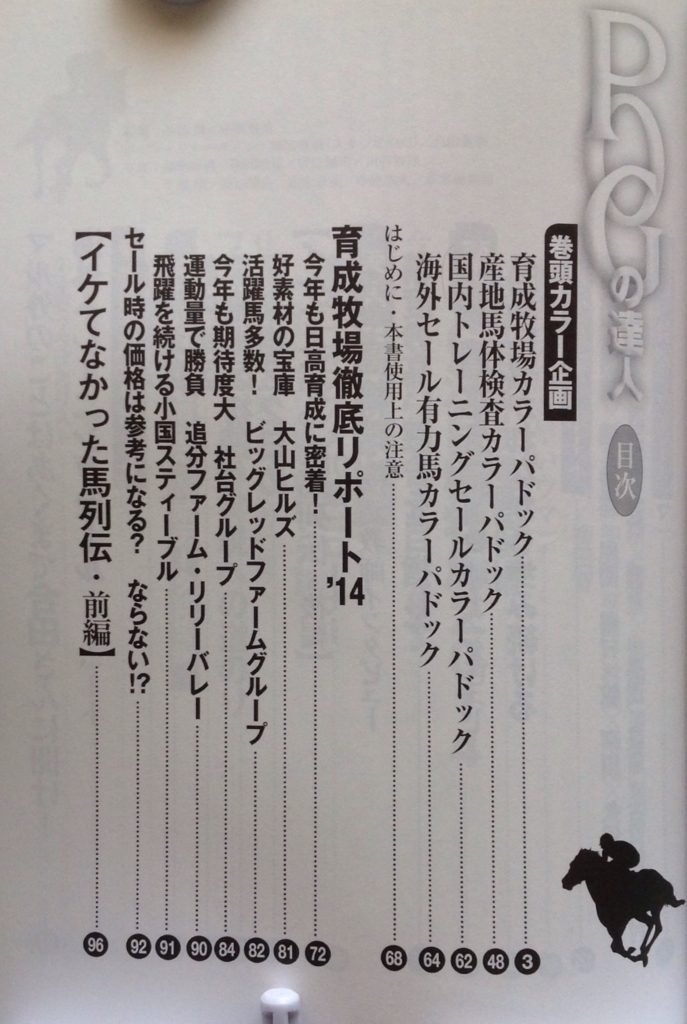 POGの達人
目次
巻頭カラー企画
育成牧場カラーパドック 3
産地馬体検査カラーパドック 48
国内トレーニングセールカラーパドック 62
海外セール有力馬カラーパドック 64
はじめに・本書使用上の注意 68
育成牧場徹底リポート'14
今年も日高育成に密着! 72
好素材の宝庫 大山ヒルズ 81
活躍馬多数! ビッグレッドファームグループ 82
今年も期待度大 社台グループ 84
運動量で勝負 追分ファーム・リリーバレー 90
飛躍を続ける小国スティーブル 91
セール時の価格は参考になる? ならない!? 92
【イケてなかった馬列伝・前編】 96